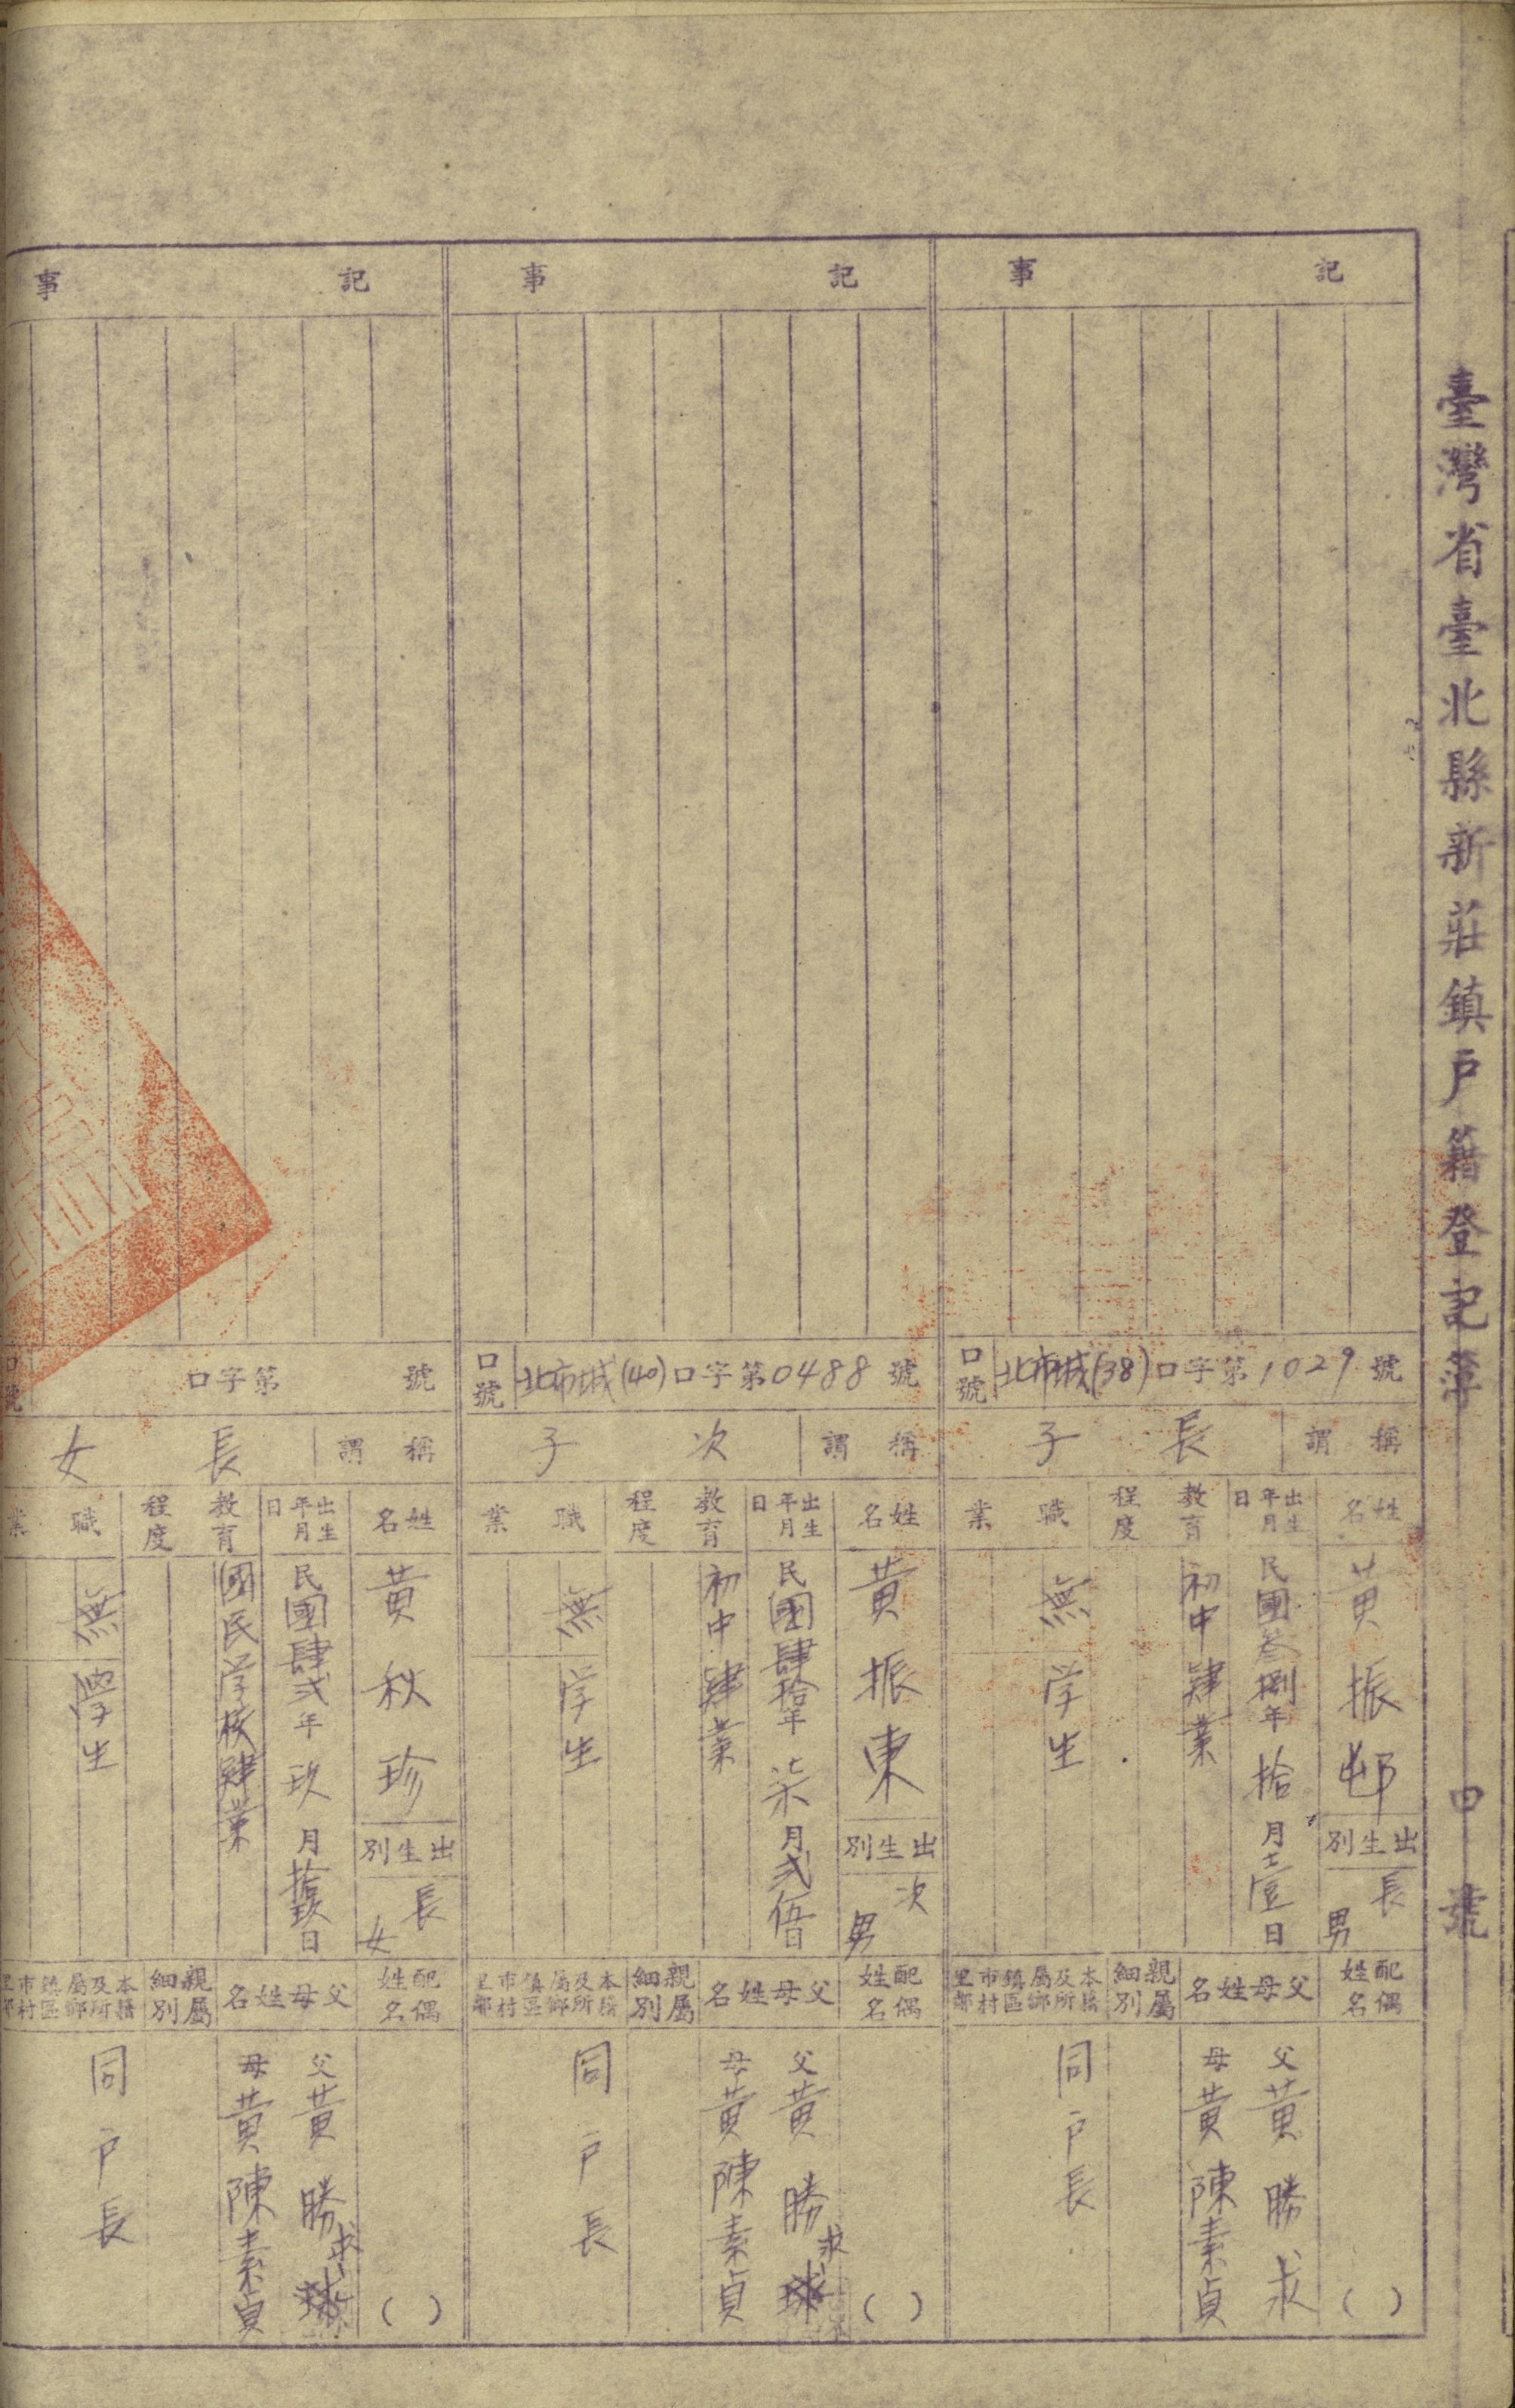 臺灣省臺北縣新莊鎮戶籍登記簿
口號
記事
口號
北市城(38)口字第1029號
稱謂
長子
姓名
黃振
出生別
長男
出生年月日
民國叁捌年拾月十壹日
教育程度
初中肄業
職業
無
学生
配偶姓名
()
父母姓名
父黃勝求
母黃陳素貞
親屬細別
本籍及所屬鄉鎮區市村里鄰
同戶長
記事
口號
北市城(40)口字第0488號
稱謂
次子
姓名
黃振東
出生別
次男
出生年月日
民國肆拾年柒月弍伍日
教育程度
初中肄業
職業
無
学生
配偶姓名
()
父母姓名
父黃勝求
母黃陳素貞
親屬細別
本籍及所屬鄉鎮區市村里鄰
同戶長
記事
口號
口字第號
稱謂
長女
姓名
黃秋珍
出生別
長女
出生年月日
民國肆弍年玖月拾玖日
教育程度
國民学校肄業
職業
無
學生
配偶姓名
()
父母姓名
父黃勝求
母黃陳素貞
親屬細別
本籍及所屬鄉鎮區市村里鄰
同戶長